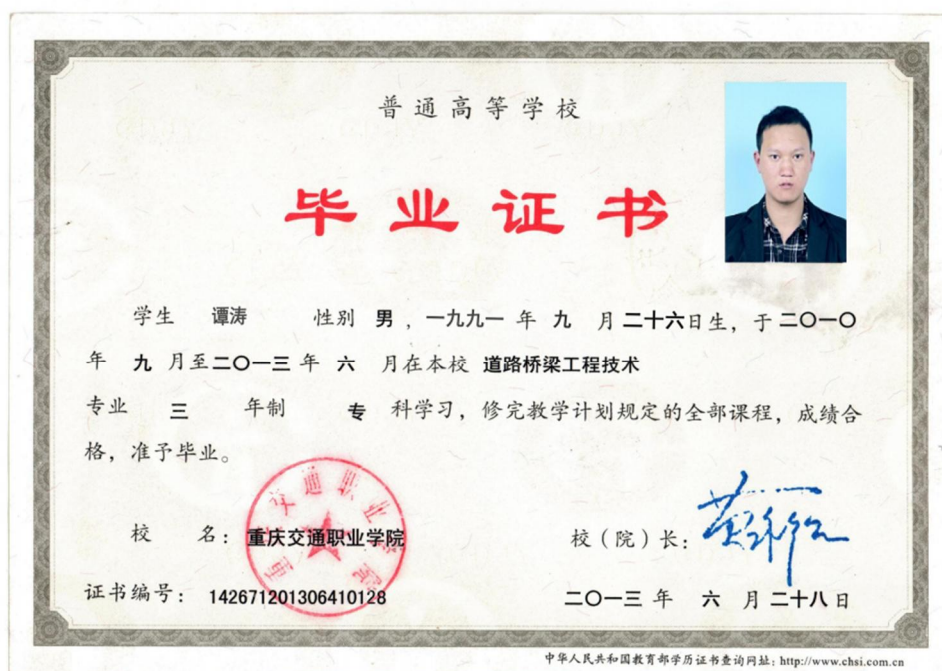 普通高等学校
毕业证书
学生 谭涛 性别 男 ，一九九一 年 九 月 二十六日生，于 二〇一〇
年 九 月至二〇一三 年 六 月在本校 道路桥梁工程技术
专业 三 年制 专 科学习，修完教学计划规定的全部课程，成绩合
格，准予毕业。
重庆交通职业学院
校 名：重庆交通职业学院 校（院）长：
证书编号： 142671201306410128 二〇一三 年 六 月 二十八日
中华人民共和国教育部学历证书查询网址：http://www.chsi.com.cn